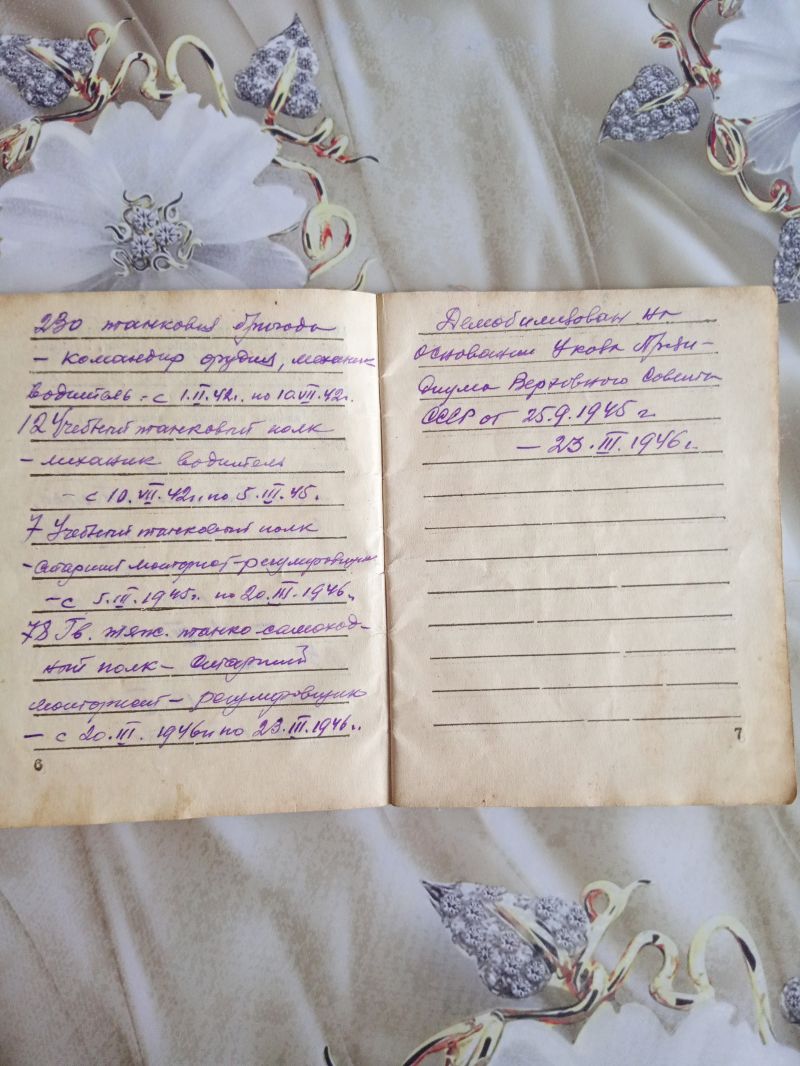 230 танковая бригада
- командир орудия, механик
водитель - с 1.II.42г. по 10.VII.42г.
12 Учебный танковый полк
- механик водитель
- с 10.VII.42г. по 5.III.45г.
7 Учебный танковый полк
- старший монтажист-регулировщик
- с 5.III.1945г. по 20.III.1946г.
78 Гв. тяж. танко-самоход-
ный полк - Старший
монтажист - регулировщик
- с 20.III.1946г. по 23.III.1946г.
6
Демобилизован на
основании Указа Прези-
диума Верховного Совета
СССР от 25.9.1945 г.
- 23.III.1946г.
7